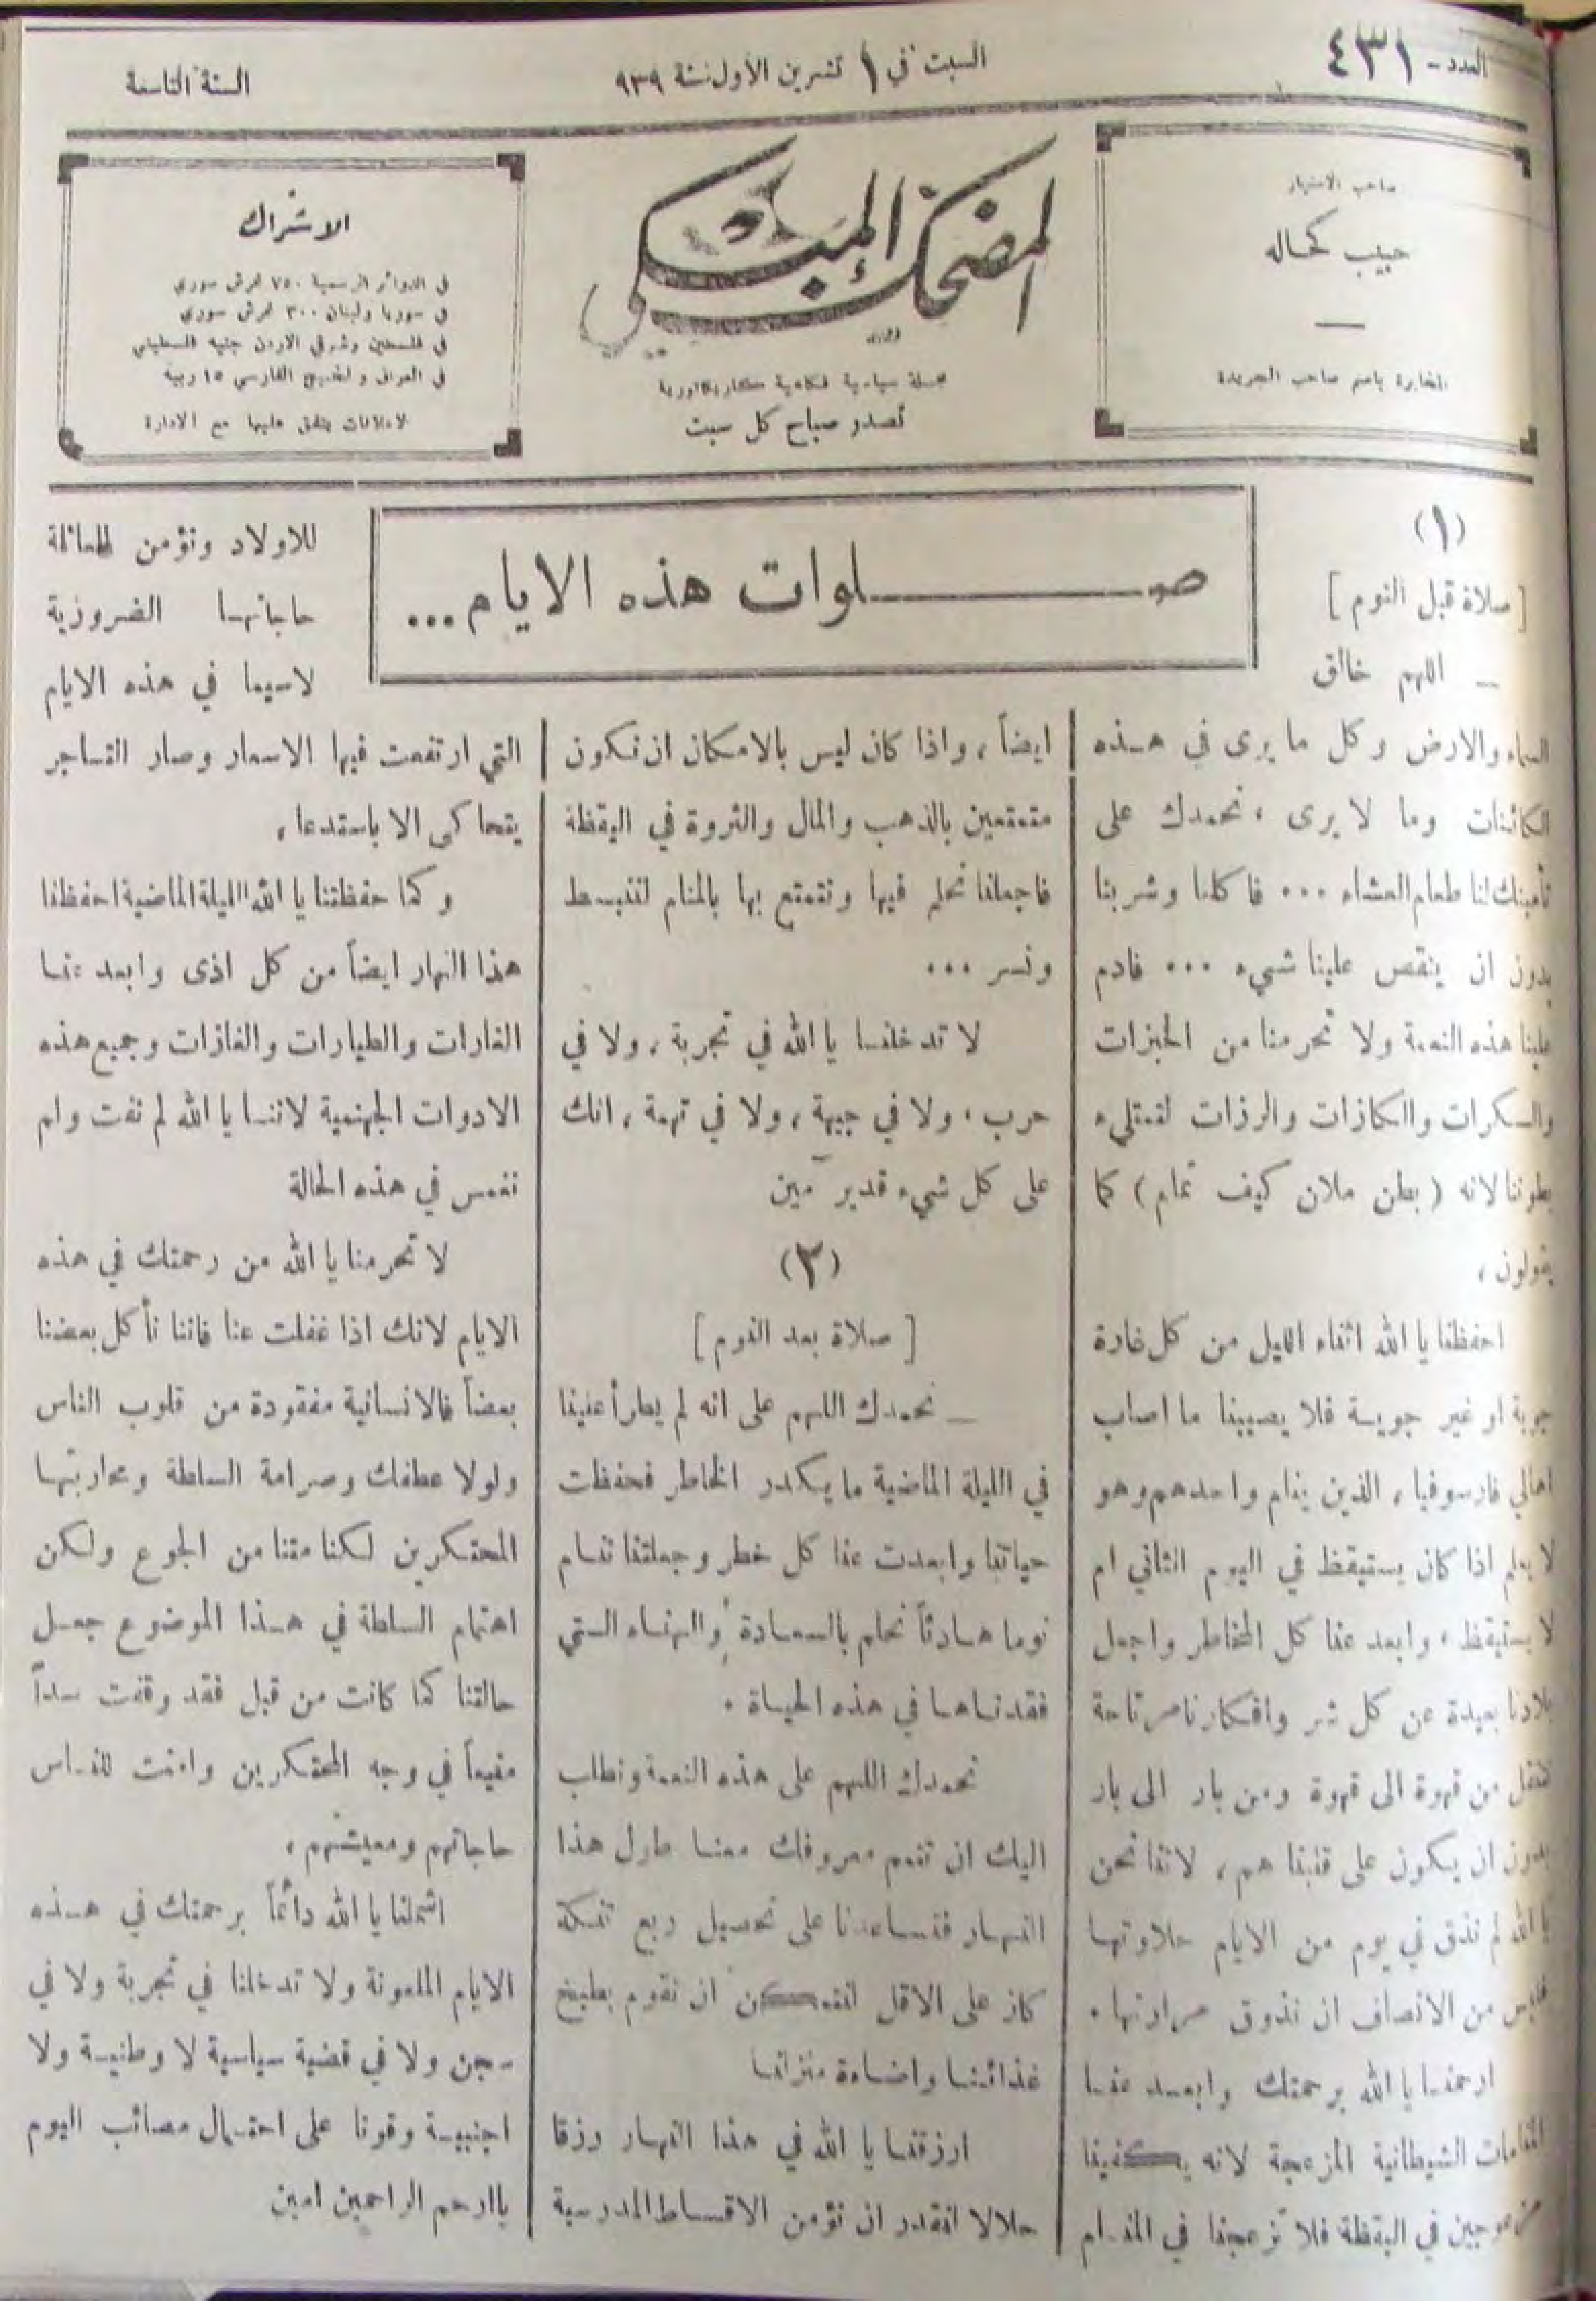 العدد - ٤٣١
السبت في ١ تشرين الأول سنة ٩٣٩
السنة التاسعة
صاحب الامتياز
حبيب كحاله
المخابرة باسم صاحب الجريدة
المضحك المبكي
مجلة سياسية فكاهية كاريكاتورية
تصدر صباح كل سبت
الاشتراك
في الدوائر الرسمية ٧٥٠ قرش سوري
في سوريا ولبنان ٣٠٠ قرش سوري
في فلسطين وشرقي الاردن جنيه فلسطيني
في العراق والخليج الفارسي ١٥ ربية
الاعلانات يتفق عليها مع الادارة
صلوات هذه الايام ...
(١)
[ صلاة قبل النوم ]
ــ اللهم خالق
السماء والارض وكل ما يرى في هذه
الكائنات وما لا يرى ، نحمدك على
تأمينك لنا طعام العشاء ... فاكلنا وشربنا
بدون ان ينقص علينا شيء ... فادم
علينا هذه النعمة ولا تحرمنا من الخبزات
والسكرات والكازات والرزات لتمتلىء
بطوننا لانه ( بطن ملان كيف تمام ) كما
يقولون ،
احفظنا يا الله اثناء الليل من كل غارة
جوية او غير جوية فلا يصيبنا ما اصاب
اهالي فارسوفيا ، الذين ينام واحدهم وهو
لا يعلم اذا كان يستيقظ في اليوم الثاني ام
لا يستيقظ ، وابعد عنا كل المخاطر واجعل
بلادنا بعيدة عن كل شر وافكارنا مرتاحة
نتنقل من قهوة الى قهوة ومن بار الى بار
بدون ان يكون على قلبنا هم ، لاننا نحن
يا الله لم نذق في يوم من الايام حلاوتها
فليس من الانصاف ان نذوق مرارتها .
ارحمنا يا الله برحمتك وابعد عنا
المنامات الشيطانية المزعجة لانه يكفينا
مزعوجين في اليقظة فلا تزعجنا في المنام
ايضاً ، واذا كان ليس بالامكان ان نكون
متمتعين بالذهب والمال والثروة في اليقظة
فاجعلنا نحلم فيها ونتمتع بها بالمنام لننبسط
ونسر ...
لا تدخلنا يا الله في تجربة ، ولا في
حرب ، ولا في جبهة ، ولا في تهمة ، انك
على كل شيء قدير آمين
(٢)
[ صلاة بعد النوم ]
ــ نحمدك اللهم على انه لم يطرأ علينا
في الليلة الماضية ما يكدر الخاطر فحفظت
حياتنا وابعدت عنا كل خطر وجعلتنا ننام
نوما هادئاً نحلم بالسعادة والهناء التي
فقدناها في هذه الحياة .
نحمدك اللهم على هذه النعمة ونطلب
اليك ان تتمم معروفك معنا طول هذا
النهار فتساعدنا على تحصيل ربع تنكة
كاز على الاقل لنتمكن ان نقوم بطبخ
غذائنا واضاءة منزلنا
ارزقنا يا الله في هذا النهار رزقا
حلالا لنقدر ان نؤمن الاقساط المدرسية
للاولاد ونؤمن للعائلة
حاجاتها الضرورية
لاسيما في هذه الايام
التي ارتفعت فيها الاسعار وصار التاجر
يتحاكى الا باستدعاء
وكما حفظتنا يا الله الليلة الماضية احفظنا
هذا النهار ايضاً من كل اذى وابعد عنا
الغارات والطيارات والغازات وجميع هذه
الادوات الجهنمية لاننا يا الله لم نفت ولم
نغمس في هذه الحالة
لا تحرمنا يا الله من رحمتك في هذه
الايام لانك اذا غفلت عنا فاننا نأكل بعضنا
بعضاً فالانسانية مفقودة من قلوب الناس
ولولا عطفك وصرامة السلطة ومحاربتها
المحتكرين لكنا متنا من الجوع ولكن
اهتمام السلطة في هذا الموضوع جعل
حالتنا كما كانت من قبل فقد وقفت سداً
منيعاً في وجه المحتكرين وامنت للناس
حاجاتهم ومعيشتهم .
اشملنا يا الله دائماً برحمتك في هذه
الايام الملعونة ولا تدخلنا في تجربة ولا في
سجن ولا في قضية سياسية لا وطنية ولا
اجنبية وقونا على احتمال مصائب اليوم
ياارحم الراحمين امين